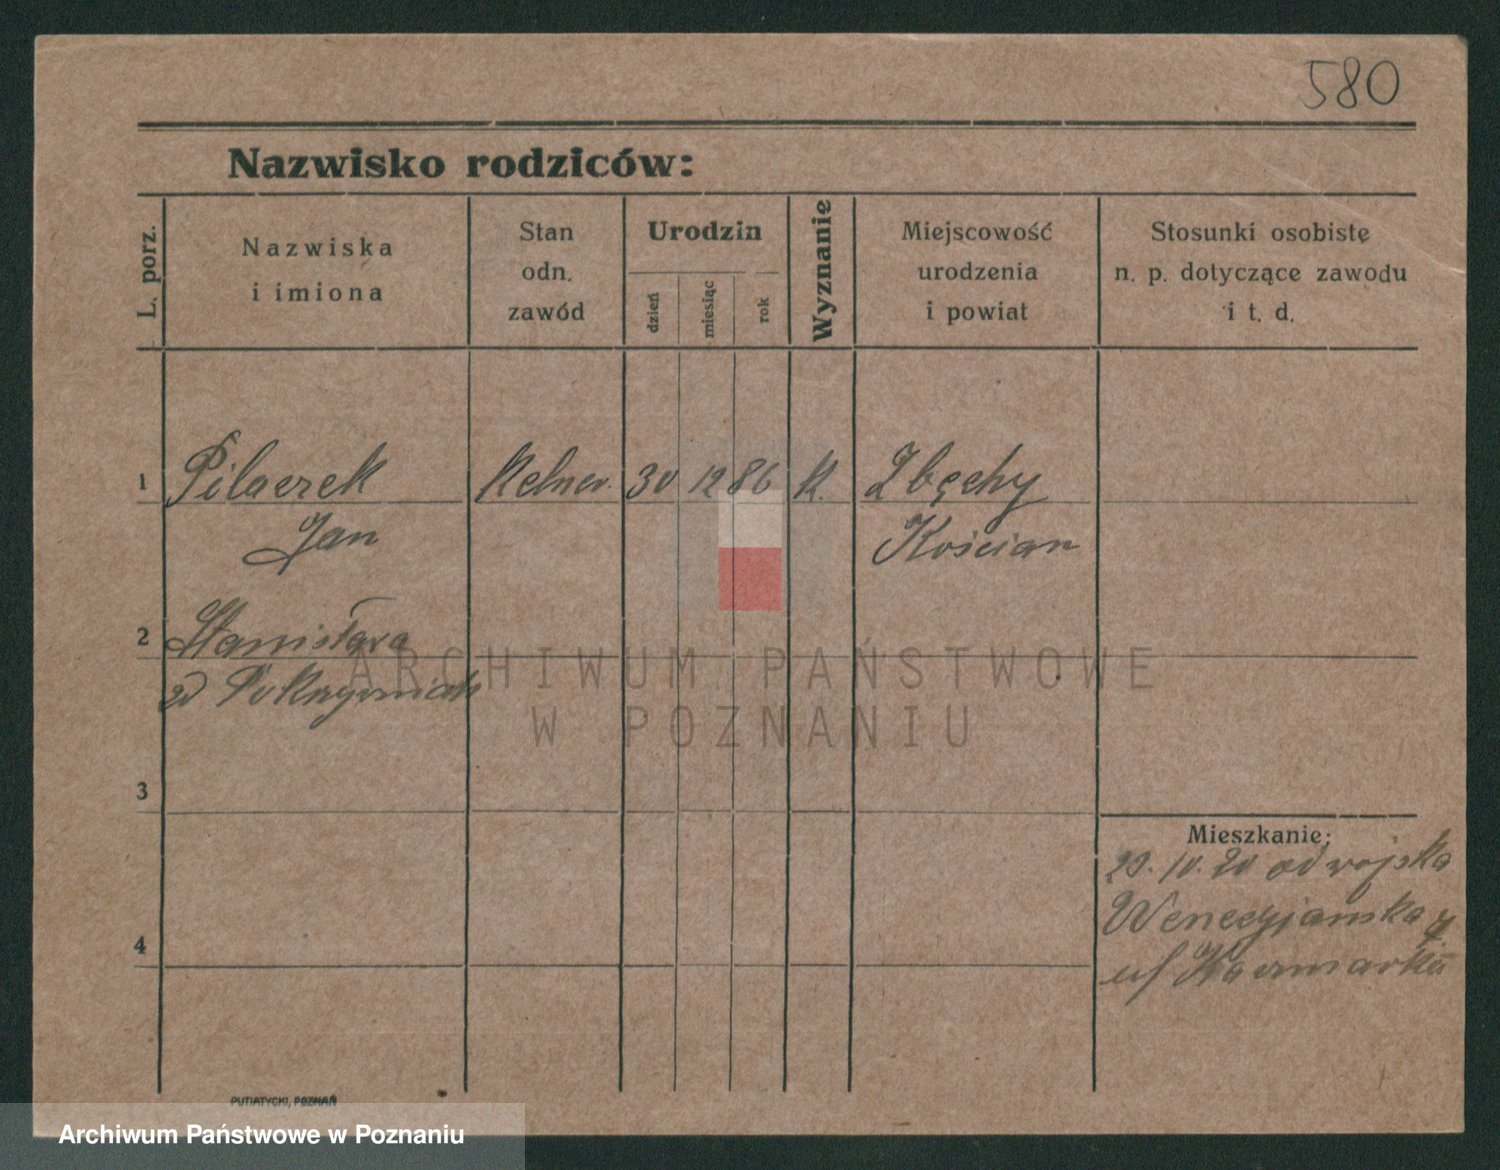 580
Nazwisko rodziców:
L. porz.
Nazwiska
i imiona
Stan
odn.
zawód
Urodzin
dzień
miesiąc
rok
Wyznanie
Miejscowość
urodzenia
i powiat
Stosunki osobiste
n. p. dotyczące zawodu
i t. d.
1 Pilaczek Kelner 30 12 86 K. Zbęchy
Jan Kościan
2 Stanisława
zd
ARCHIWUM PAŃSTWOWE
W POZNANIU
3
Mieszkanie:
10. 20 od wojska
Wenecjanska
4
u/ Kaczmarka
PUTIATYCKI, POZNAŃ
Archiwum Państwowe w Poznaniu